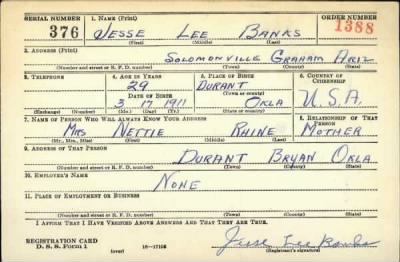 SERIAL NUMBER 1. NAME (Print) ORDER NUMBER
376 JESSE LEE BANKS 1388
(First) (Middle) (Last)
2. ADDRESS (Print)
SOLOMONVILLE GRAHAM ARIZ
(Number and street or R. F. D. number) (Town) (County) (State)
3. TELEPHONE 4. AGE IN YEARS 5. PLACE OF BIRTH 6. COUNTRY OF CITIZENSHIP
29 DURANT
DATE OF BIRTH (Town or county)
3 17 1911 OKLA U.S.A.
(Exchange) (Number) (Mo.) (Day) (Yr.) (State or country)
7. NAME OF PERSON WHO WILL ALWAYS KNOW YOUR ADDRESS 8. RELATIONSHIP OF THAT PERSON
MRS NETTIE RHINE MOTHER
(Mr., Mrs., Miss) (First) (Middle) (Last)
9. ADDRESS OF THAT PERSON
DURANT BRYAN OKLA.
(Number and street or R. F. D. number) (Town) (County) (State)
10. EMPLOYER'S NAME
NONE
11. PLACE OF EMPLOYMENT OR BUSINESS
(Number and street or R. F. D. number) (Town) (County) (State)
I AFFIRM THAT I HAVE VERIFIED ABOVE ANSWERS AND THAT THEY ARE TRUE.
REGISTRATION CARD
D. S. S. Form 1 (over) 16-17105 Jesse Lee Banks
(Registrant's signature)